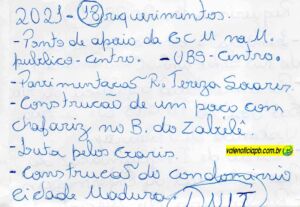 2021 - 18 requerimentos.
- Ponto de apoio da GCM na M.
público - Centro. - UBS - Centro.
- Pavimentação R. Tereza Soares.
- Construcao de um poço com
chafariz no B. do Zabilê.
- Luta pelos Garis.
valenoticiapb.com.br
- Construcão do condominio
cidade Madura. DNIT